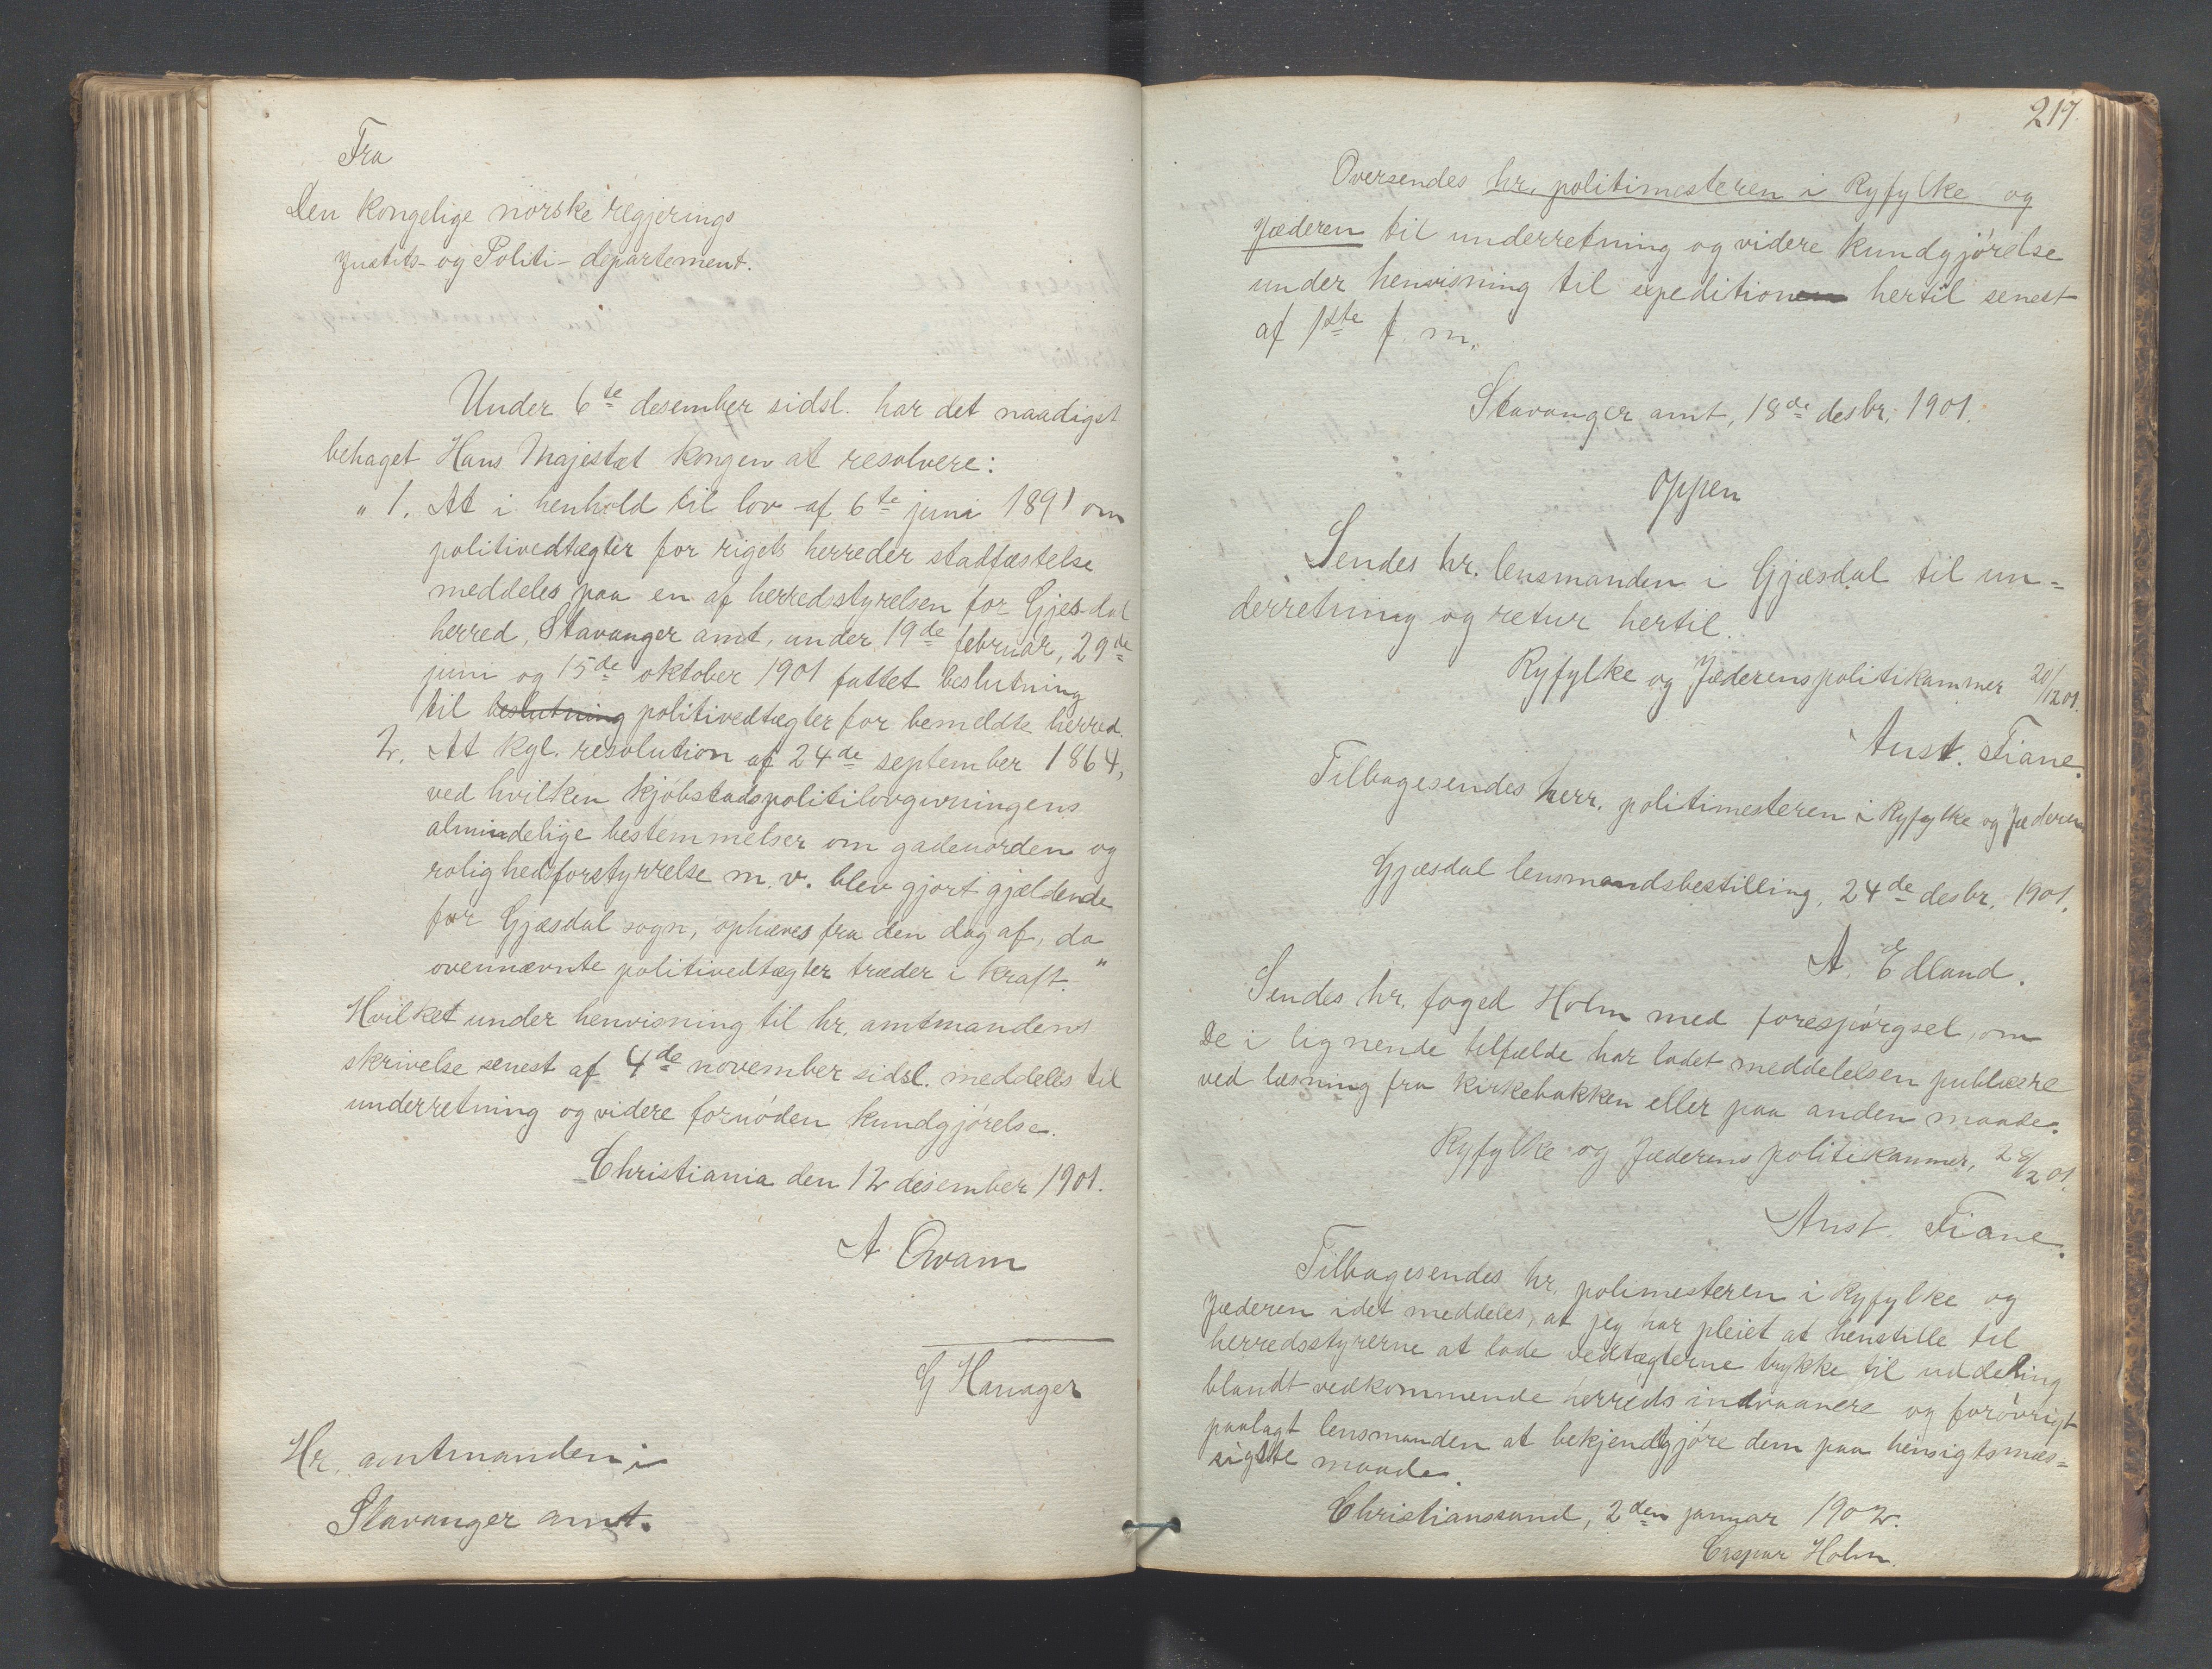 Fra
Den kongelige norske regjerings
Justits- og Politi-departement.
Under 6te desember sidsl. har det naadigst
behaget Hans Majestæt Kongen at resolvere:
„1. At i henhold til lov af 6te juni 1891 om
politivedtægter for rigets herreder stadfæstelse
meddeles paa en af herredsstyrelsen for Gjesdal
herred, Stavanger amt, under 19de februar, 29de
juni og 15de oktober 1901 fattet beslutning
til beslutning politivedtægter for bemeldte herred.
2. At kgl. resolution af 24de september 1864,
ved hvilken kjøbstadspolitilovgivningens
almindelige bestemmelser om gadeuorden og
rolighedsforstyrrelse m. v. blev gjort gjældende
for Gjæsdal sogn, ophæves fra den dag af, da
ovennævnte politivedtægter træder i kraft."
Hvilket under henvisning til hr. amtmandens
skrivelse senest af 4de november sidsl. meddeles til
underretning og videre fornøden kundgjørelse.
Christiania den 12 desember 1901.
A Qvam
G Hanager
Hr. amtmanden i
Stavanger amt.
217
Oversendes hr. politimesteren i Ryfylke og
Jæderen til underretning og videre kundgjørelse
under henvisning til expedition hertil senest
af 1ste f. m.
Stavanger amt, 18de desbr. 1901.
Oppen
Sendes hr. lensmanden i Gjæsdal til un=
derretning og retur hertil.
Ryfylke og Jæderens politikammer 20/12 01.
Aust. Fiane.
Tilbagesendes herr. politimesteren i Ryfylke og Jæderen
Gjæsdal lensmandsbestilling, 24de desbr. 1901.
A. Edland.
Sendes hr. foged Holm med forespørgsel, om
De i lignende tilfælde har ladet meddelelsen publisere
ved læsning fra kirkebakken eller paa anden maade.
Ryfylke og Jæderens politikammer, 28/12 01.
Aust. Fiane.
Tilbagesendes hr. polimesteren i Ryfylke og
Jæderen idet meddeles, at jeg har pleiet at henstille til
herredsstyrerne at lade vedtægterne trykke til uddeling
blandt vedkommende herreds indvaanere og forøvrigt
paalagt lensmanden at bekjendtgjøre dem paa hensigtsmæs=
sigste maade.
Christianssund, 2den januar 1902.
Caspar Holm.